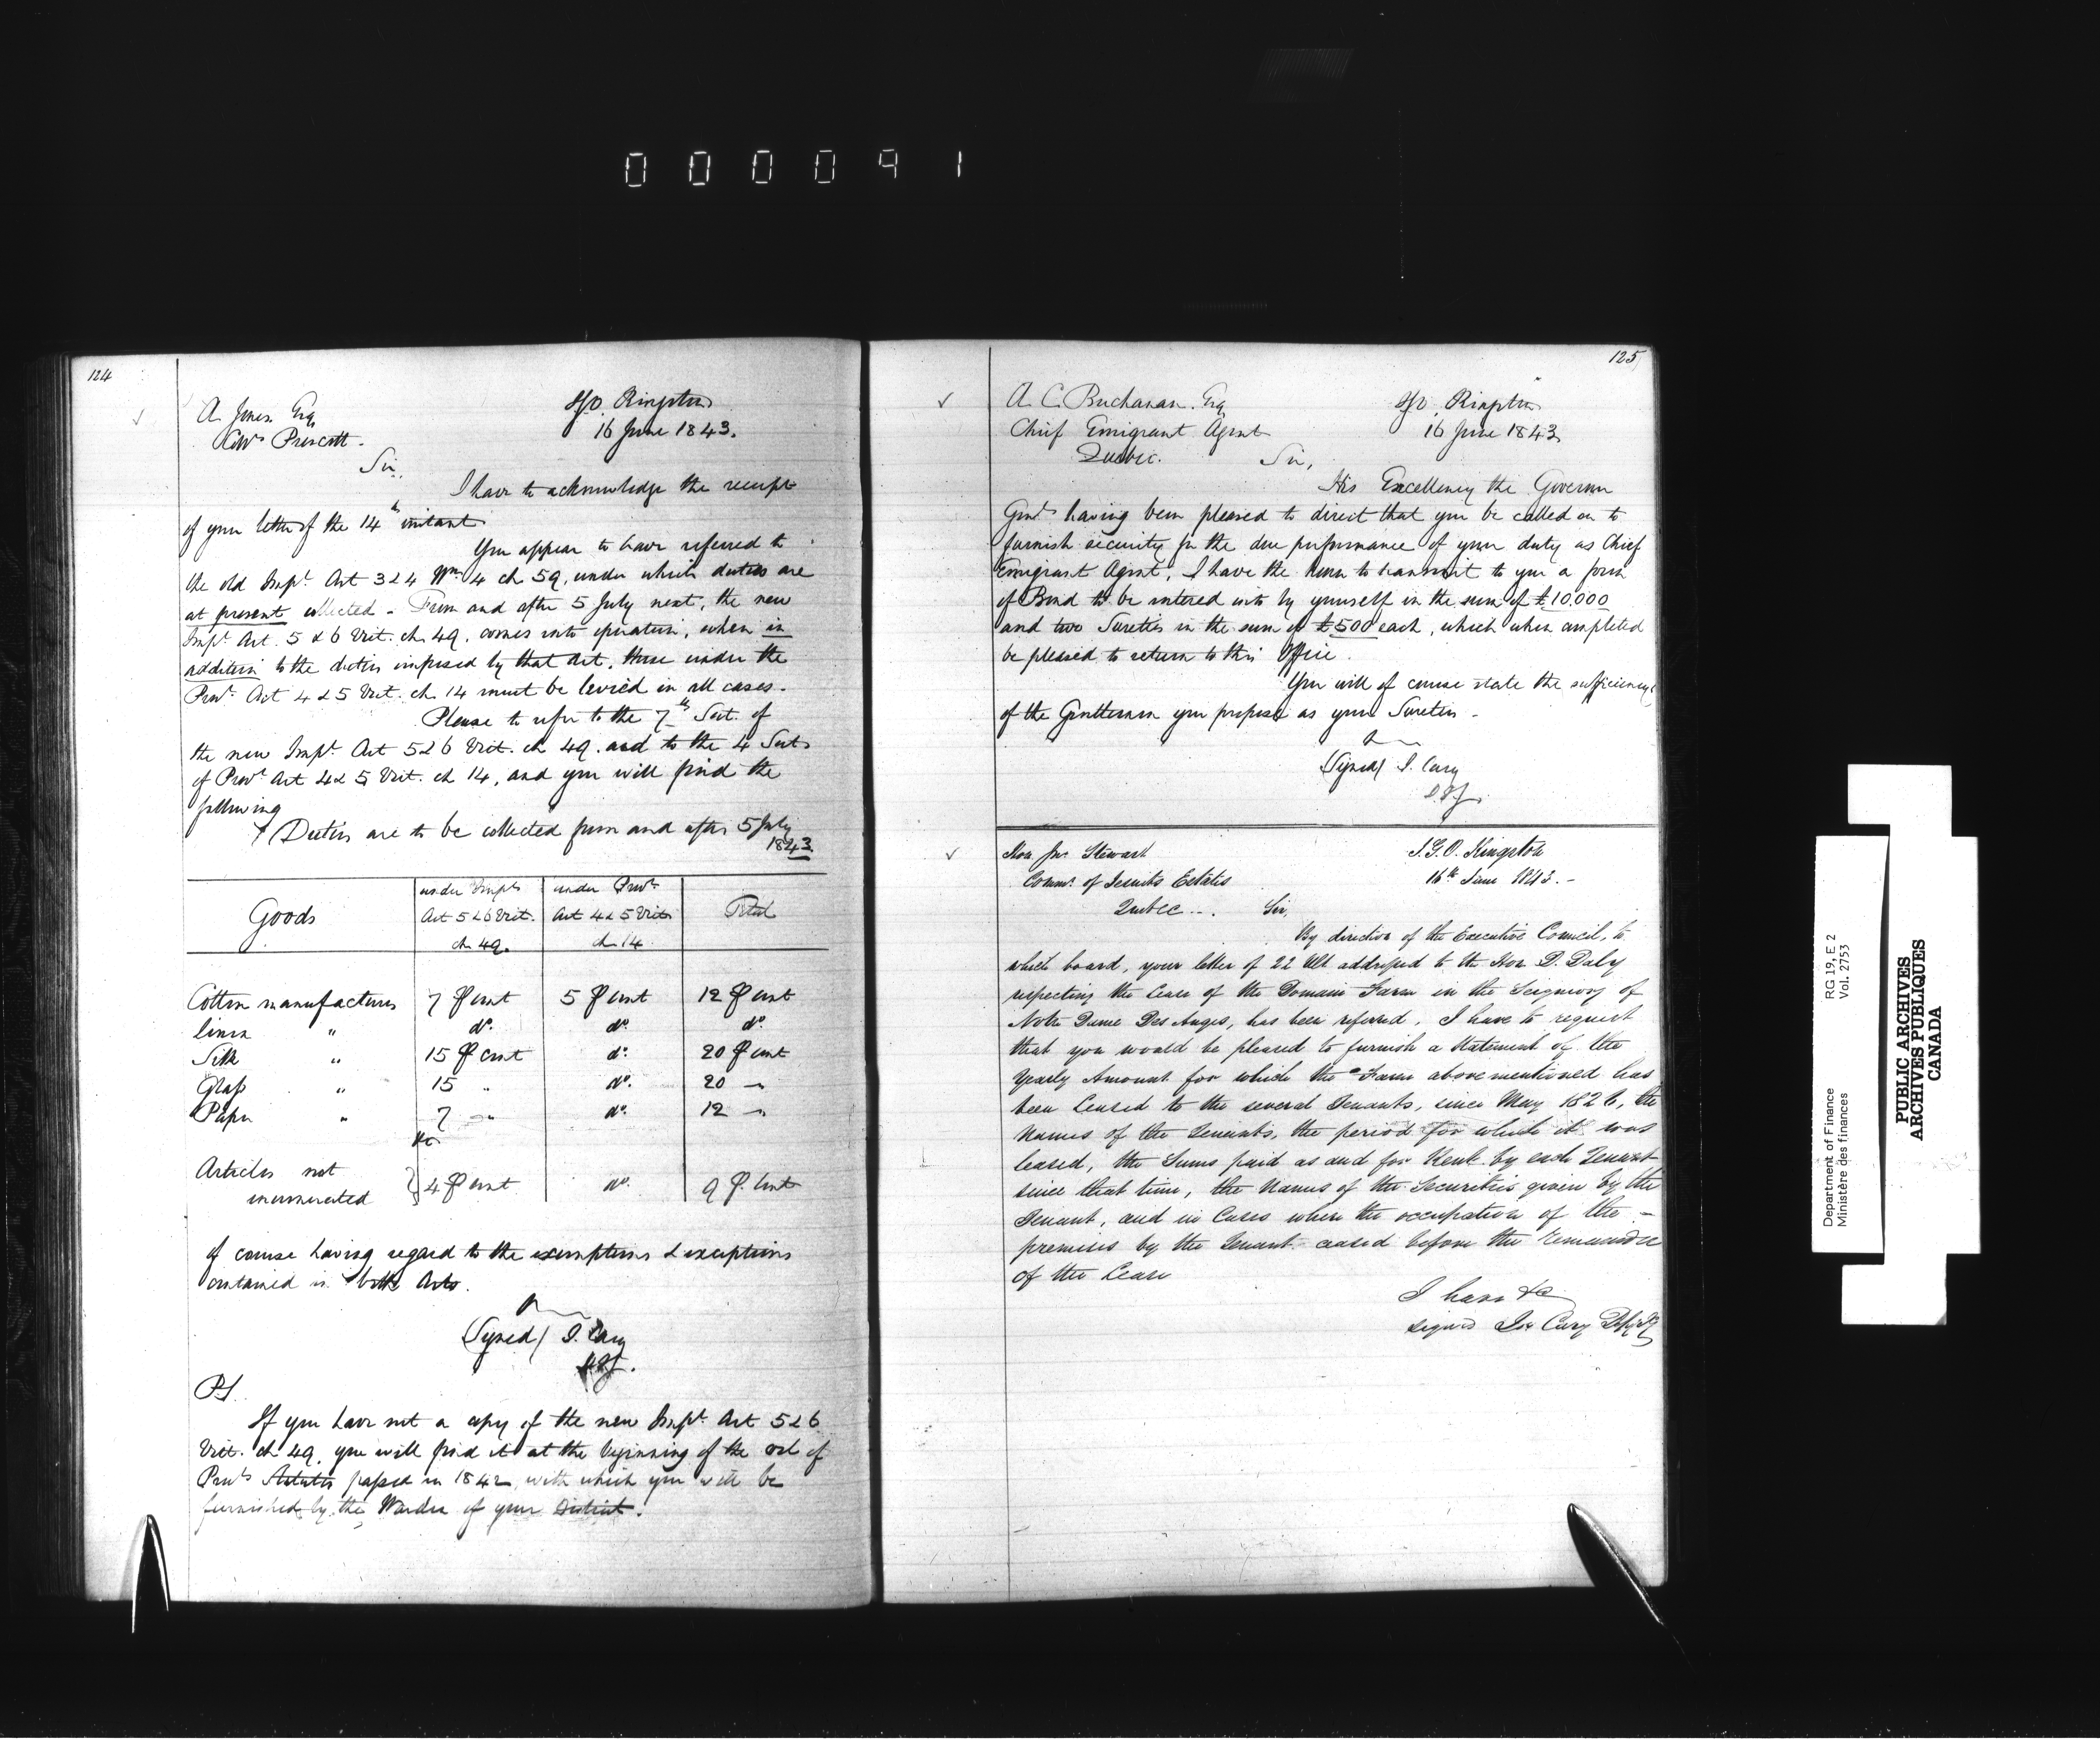 000091
124
A. Jones. Esq
Collr Prescott.
IGO. Kingston
16 June 1843.
Sir,
I have to acknowledge the receipt
of your letter of the 14th instant
You appear to have referred to
the old Impl. Act 3 & 4 Wm. 4 ch 59, under which duties are
at present collected - From and after 5 July next, the new
Impl. Act. 5 & 6 Vict. ch 49. comes into operation, when in
addition to the duties imposed by that Act, those under the
Provl. Act 4 & 5 Vict. ch 14 must be levied in all cases.
Please to refer to the 7th Sect. of
the new Impl. Act 5 & 6 Vict. ch 49. and to the 4 Sect.
of Provl Act 4 & 5 Vict. ch 14, and you will find the
following
Duties are to be collected from and after 5 July
1843.
Goods
under Impl
Act 5 & 6 Vict.
ch 49.
under Provl.
Act 4 & 5 Vict
ch 14
Total
Cotton manufactures 7 P cent 5 P cent 12 P cent
linen " do. do. do.
Silk " 15 P cent do. 20 P cent
Glass " 15 " do. 20 "
Paper " 7 " do. 12 "
&c
Articles not
enumerated } 4 P cent do. 9 P. Cent
Of course having regard to the exemptions & exceptions
contained in both Acts.
(Signed) J. Cary
D.I.G.
PS.
If you have not a copy of the new Impl. Act 5 & 6
Vict. ch 49, you will find it at the beginning of the vol of
Provl. Statutes passed in 1842 with which you will be
furnished by the Warden of your District.
125
A. C. Buchanan. Esq
Chief Emigrant Agent
Quebec.
IGO. Kingston
16 June 1843
Sir,
His Excellency the Governor
Genl. having been pleased to direct that you be called on to
furnish security for the due performance of your duty as Chief
Emigrant Agent, I have the honor to transmit to you a form
of Bond to be entered into by yourself in the sum of £10,000
and two Sureties in the sum of £500 each, which when completed
be pleased to return to this Office.
You will of course state the sufficiency
of the Gentlemen you propose as your Sureties -
(Signed) J. Cary
D.I.G.
Hon. Jno. Stewart
Commr. of Jesuits Estates
Quebec - .
I.G.O. Kingston
16th June 1843. -
Sir,
By direction of the Executive Council, to
which board, your letter of 22 Ult addressed to the Hon D. Daly
respecting the Lease of the Domain Farm in the Seigniory of
Notre Dame Des Anges, has been referred, I have to request
that you would be pleased to furnish a Statement of the
Yearly Amount for which the Farm above mentioned has
been Leased to the several Tenants, since May 1826, the
Names of the Tenants, the period for which it was
leased, the Sums paid as and for Rent by each Tenant
since that time, the Names of the Securities given by the
Tenant, and in Cases where the occupation of the -
premises by the Tenant ceased before the remainder
of the Lease
I have &c
signed Jos Cary
Department of Finance
Ministère des finances
RG 19, E 2
Vol. 2753
PUBLIC ARCHIVES
ARCHIVES PUBLIQUES
CANADA